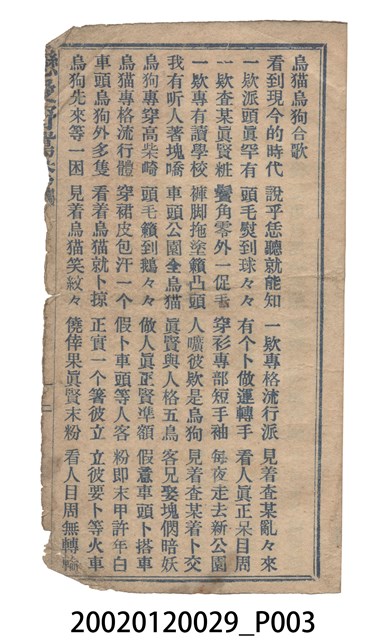 烏猫烏狗合歌
看到現今的時代 說乎恁聽就能知 一欵專格流行派 見着査某亂々來
一欵派頭眞罕有 頭毛熨到球々々 有个卜做運轉手 看人眞正呆目周
一欵査某眞賢粧 鬢角零外一促 穿衫專部短手袖 每夜走去新公園
一欵專有讀學校 褲脚拖塗籟凸頭 人嚝彼欵是烏狗 見着査某着卜交
我有听人著塊嘺 車頭公園全烏猫 眞賢與人格五鳥 客兄娶塊㑂暗妖
烏狗專穿高柴崎 頭毛籟到鵝々々 做人眞正賢準額 假意車頭卜搭車
烏猫專格流行體 穿裙皮包汗一个 假卜車頭等人客 粉即末甲許年白
車頭烏狗外多隻 看着烏猫就卜掠 正實一个箸彼立 立彼要卜等火車
烏狗先來等一困 見着烏猫笑紋々 僥倖果眞賢末粉 看人目周無轉輪
20020120029_P003